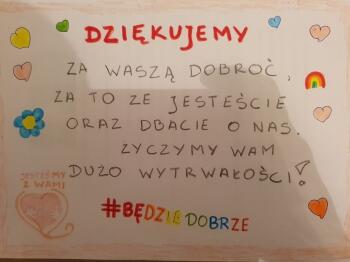 DZIĘKUJEMY
ZA WASZĄ DOBROĆ,
ZA TO ZE JESTEŚCIE
ORAZ DBACIE O NAS.
ZYCZYMY WAM
DUZO WYTRWAŁOŚCI!
JESTEŚMY
Z WAMI
#BĘDZIEDOBRZE